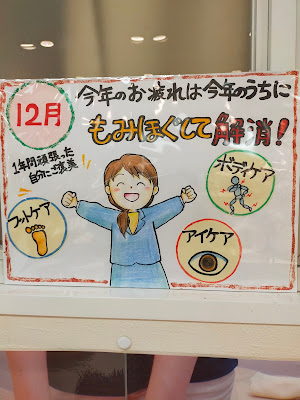 12月
今年のお疲れは今年のうちに
もみほぐして解消!
1年間頑張った
自分にご褒美
ボディケア
フットケア
アイケア